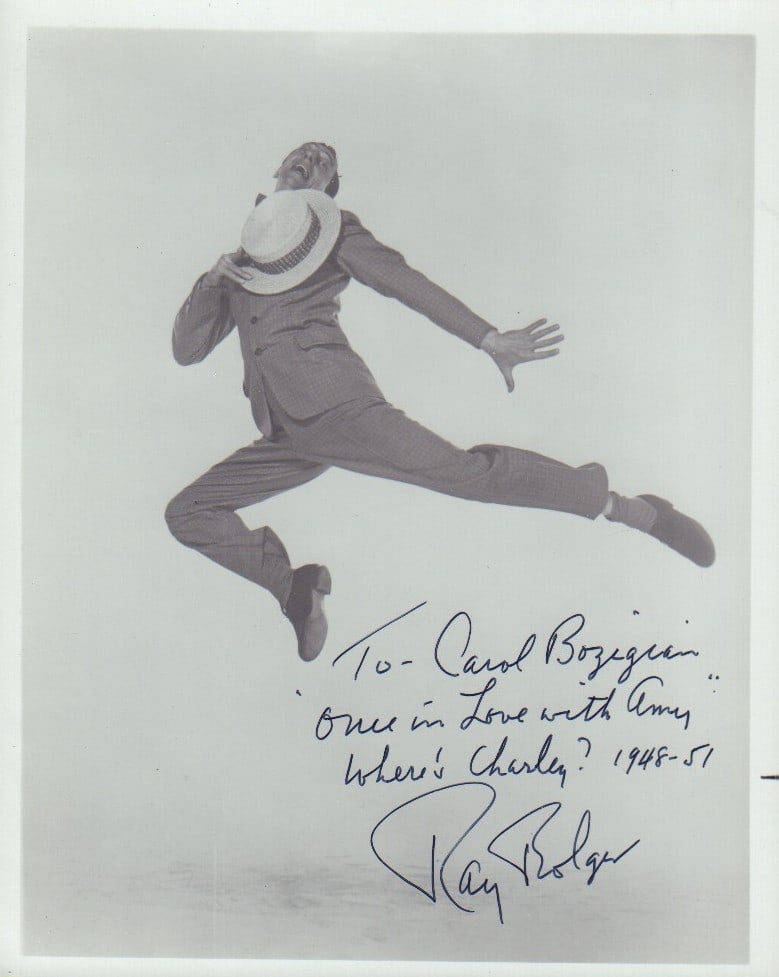 To - Carol Bozigian
"Once in Love with Amy"
Where's Charley? 1948-51
Ray Bolger